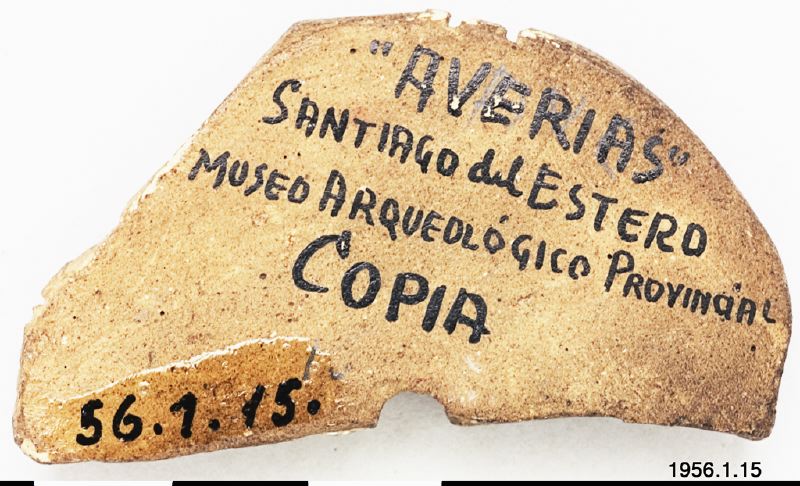 "AVERIAS"
SANTIAGO del ESTERO
MUSEO ARQUEOLÓGICO PROVINCIAL
COPIA
56.1.15.
1956.1.15